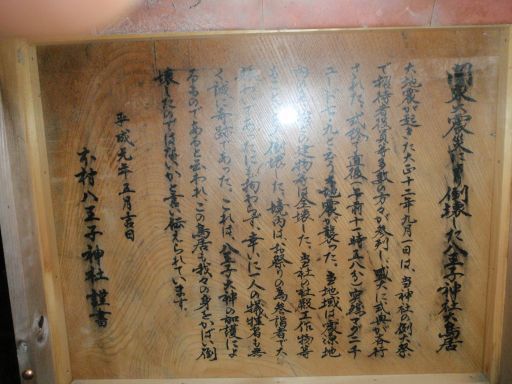 関東大震災により倒壊した八王子神社鳥居
大地震が起きた大正十二年九月一日は、当神社の例大祭
で招待者役員等多数の方々が参列し、盛大に式典が举行
された。式終了直後(午前十一時五八分)突然マグニチ
ュード七・九と云う大地震が襲った。当地域は震源地
の建物では全壊した。当社の社殿工作物等
倒壊した。境内はお祭りの為参詣者で大
にも拘わらず、幸いに一人の犠牲者も無
く誠に奇跡であった。これは、八王子大神の加護によ
るものであると云われ、この鳥居も我々の身をかばい倒
壊したのではないかと言い伝えられています。
平成元年五月吉日
木村八王子神社謹書